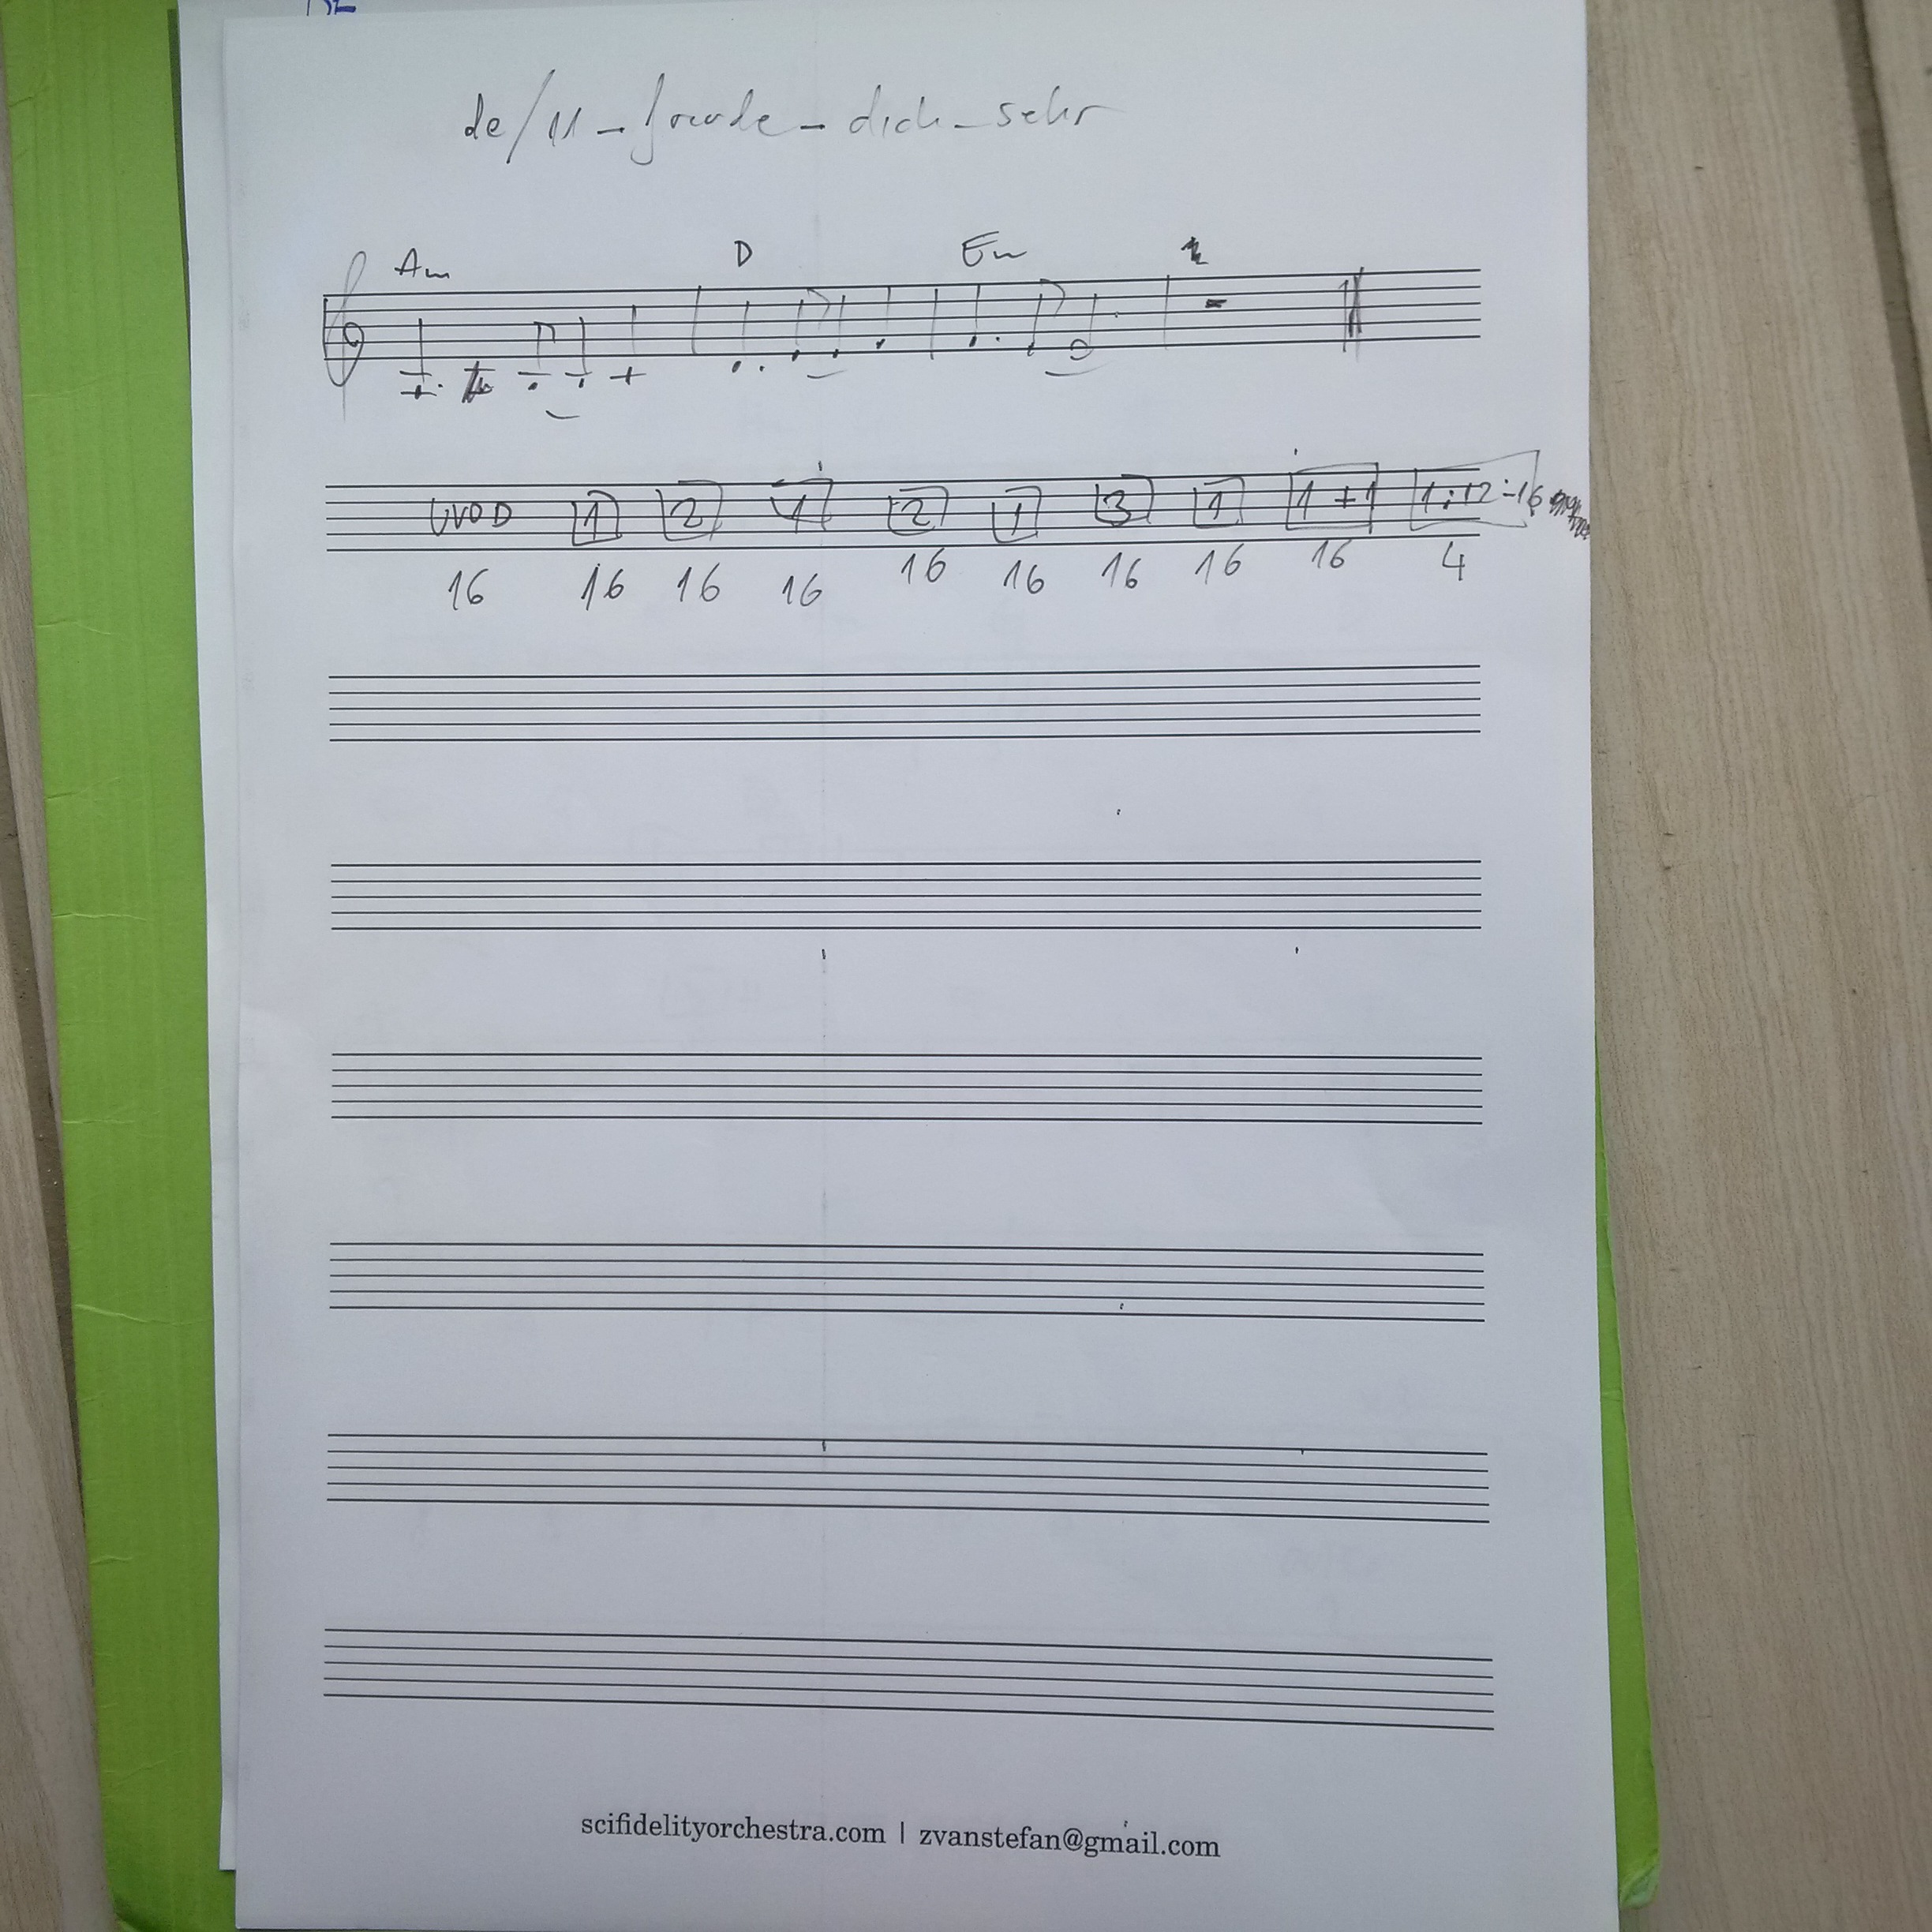 de/11_freude_dich_sehr
Am D Em
UVOD 1 2 1 2 1 3 1 1+1 1:12-16
16 16 16 16 16 16 16 16 16 4
scifidelityorchestra.com | zvanstefan@gmail.com